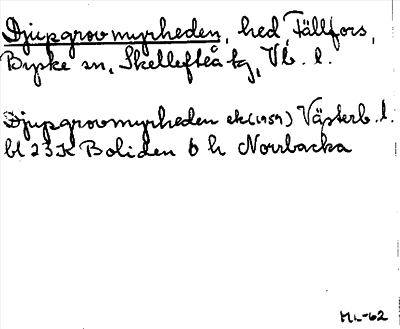 Djupgrovmyrheden, hed, Fällfors,
Byske sn, Skellefteå tg, Vb. l.
Djupgrovmyrheden ek (1959) Västerb. l.
bl 23 K Boliden 6 h Norrbacka
ML-62